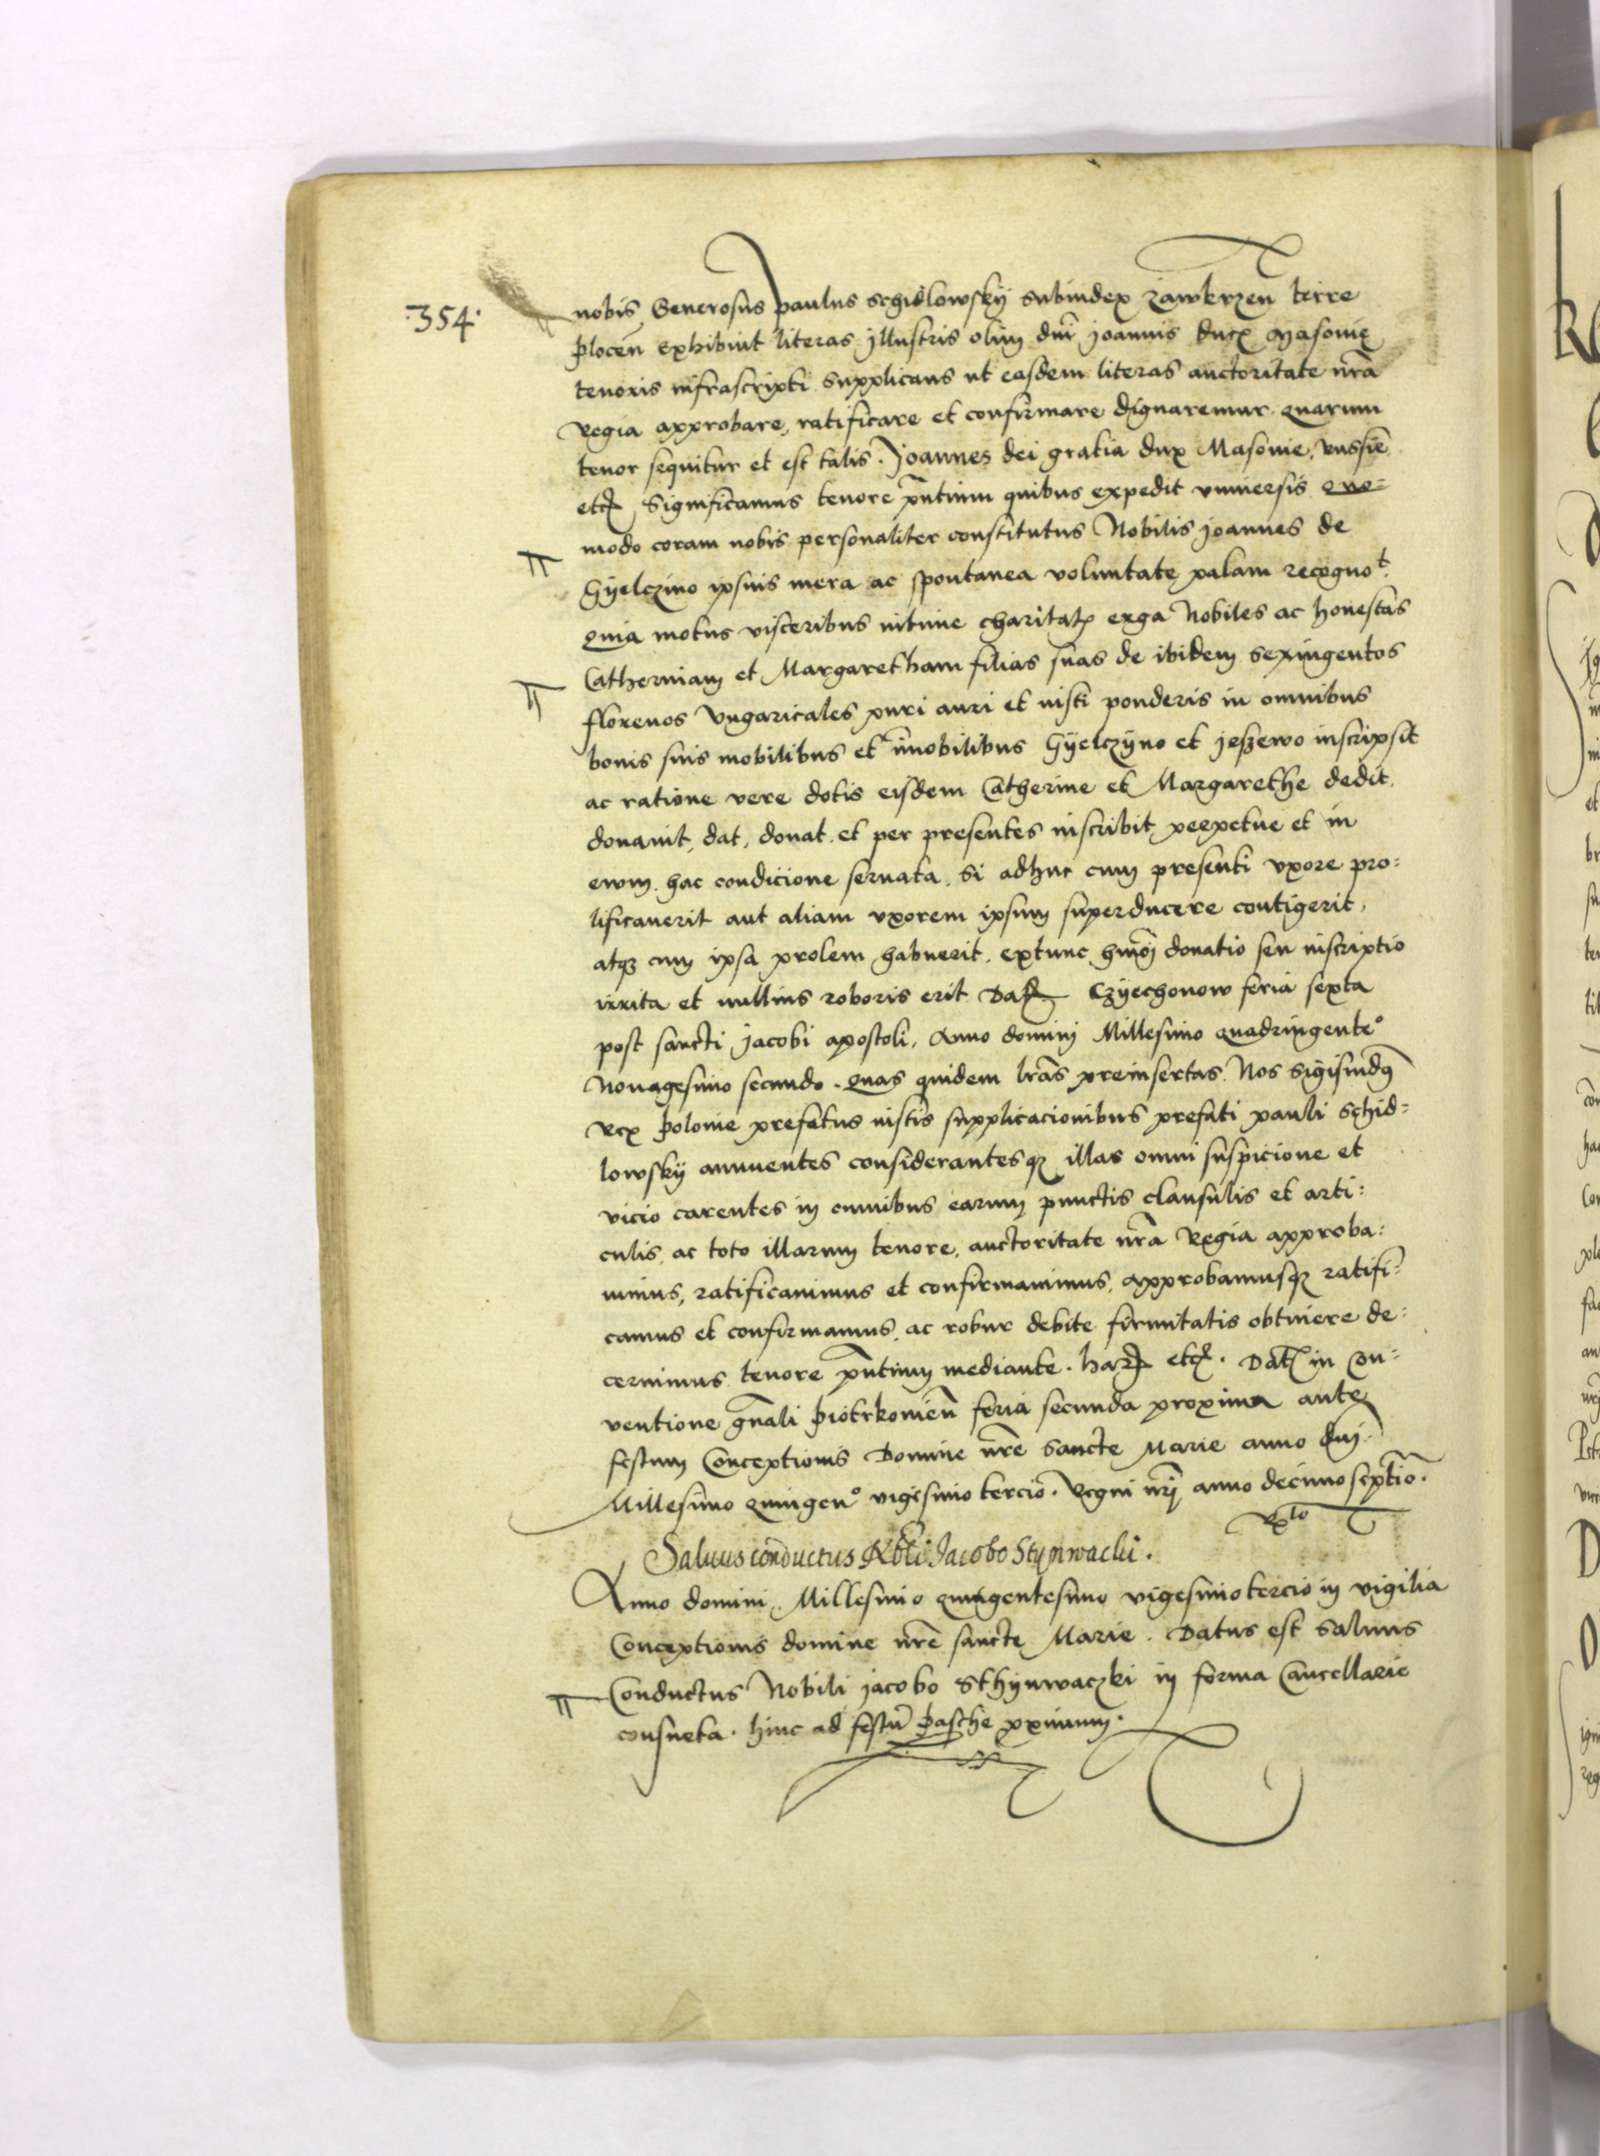 ·354·
nobis Generosus paulus schidlowskÿ subiudex zawkrzen̄ terre
plocen̄ exhibuit literas jllustris olim dni joannis ducꝭ Masouię
tenoris infrascripti supplicans ut easdem literas auctoritate nr̄a
Regia approbare, ratificare et confirmare dignaremur quarum
tenor sequitur et est talis. Joannes dei gratia dux Masouie, Russiē
etc̄ Significamus tenore pn̄tium quibus expedit vniuersis quo=
modo coram nobis personaliter constitutus Nobilis joannes de
Gÿelczino ipsius mera ac spontanea voluntate palam recognoᵗ.
quia motus visceribus intime charitatꝭ erga Nobiles ac honestas
Catherinam et Margaretham filias suas de ibidem sexingentos
florenos Vngaricales puri auri et iusti ponderis in omnibus
bonis suis mobilibus et īmobilibus Gÿelczÿno et jeszewo inscripsit
ac ratione vere dotis eisdem Catherine et Margarethe dedit,
donauit, dat, donat et per presentes inscribit perpetue et in
ewm. hac condicione seruata. Si adhuc cum presenti vxore pro=
lificauerit aut aliam vxorem ipsum superducere contigerit,
atqꝫ cum ipsa prolem habuerit, extunc hmōi donatio seu inscriptio
irrita et nullius roboris erit Datꝭ Czÿechonow feria sexta
post sancti jacobi apostoli, Anno domini Millesimo quadringenteº
Nonagesimo secundo. quas quidem lrās preinsertas. Nos Sigismdꝰ
Rex polonie prefatus iustis supplicacionibus prefati pauli schid=
lowskÿ annuentes considerantesqꝫ illas omni suspicione et
vicio carentes in omnibus earum punctis clausulis et arti=
culis, ac toto illarum tenore, auctoritate nr̄a Regia approba=
uimus, ratificauimus et confirmauimus, approbamusqꝫ ratifi=
camus et confirmamus, ac robur debite firmitatis obtinere de=
cernimus tenore pn̄tium mediante. harꝭ etc̄. Datꝭ in Con=
uentione gn̄ali piotrkouien̄ feria secunda proxima ante
festum Conceptionis Domine nr̄e Sancte Marie anno dnj
Millesimo quingenº vigesimo tercio. Regni nr̄j anno decimoseptīo.
Rᵗᵒ
Saluus conductus Nbli Jacobo Stynwachi.
Anno domini Millesimo quingentesimo vigesimotercio in vigilia
Conceptionis domine nr̄e sancte Marie. Datus est saluus
Conductus Nobili jacobo Sthÿnwaczki in forma Cancellarie
consueta. hinc ad festū pasche